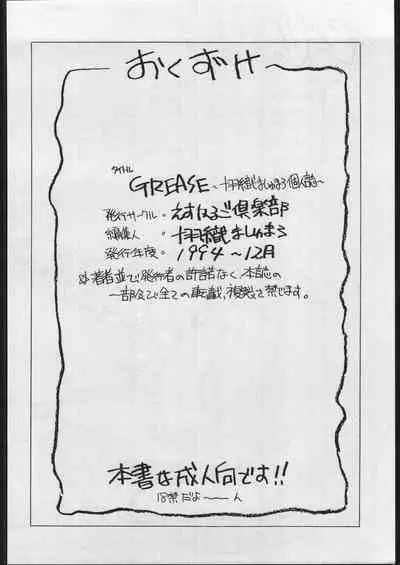 おくずけ
タイトル
GREASE 〜羽織ましゅまろ個人誌〜
発行サークル・えすはるご倶楽部
編集人・羽織ましゅまろ
発行年度・1994〜12月
※著者並び発行者の許諾なく、本誌の
一部全て全ての転載、複製を禁じます。
本書は成人向です!!
18禁だよ〜ん